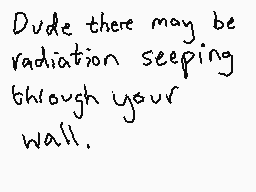 Dude there may be
radiation seeping
through your
wall.